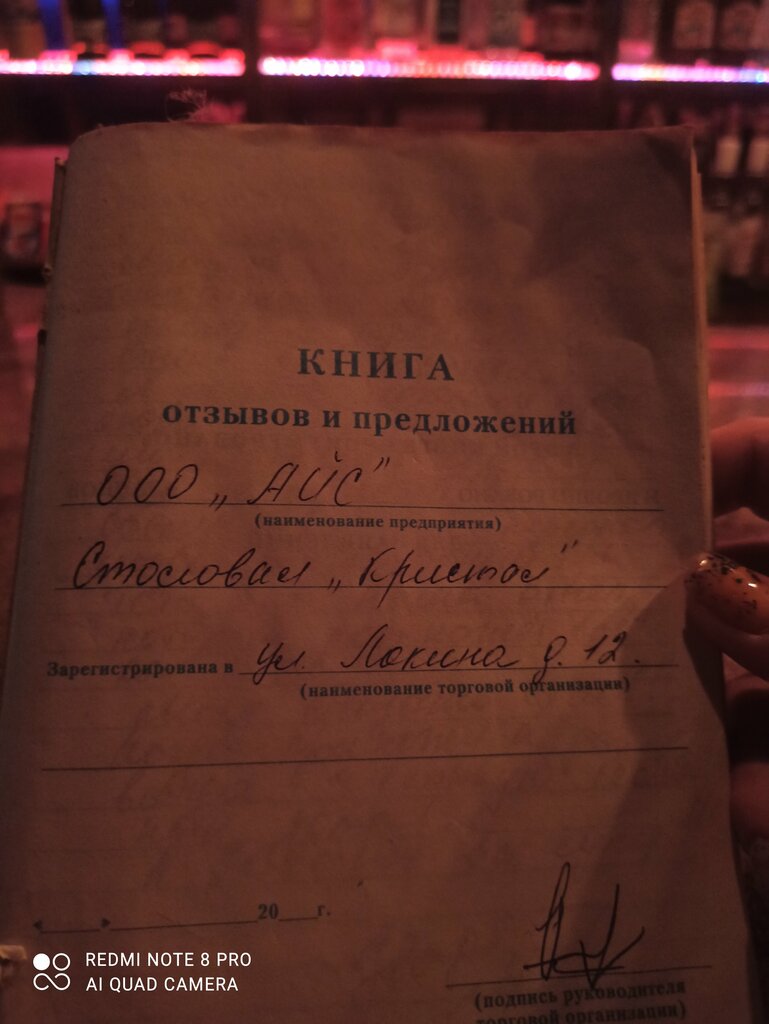 КНИГА
отзывов и предложений
ООО „АЙС"
(наименование предприятия)
Столовая „Кристал"
Зарегистрирована в ул. Локина д. 12.
(наименование торговой организации)
«____»____________20___г.
(подпись руководителя
торговой организации)
REDMI NOTE 8 PRO
AI QUAD CAMERA